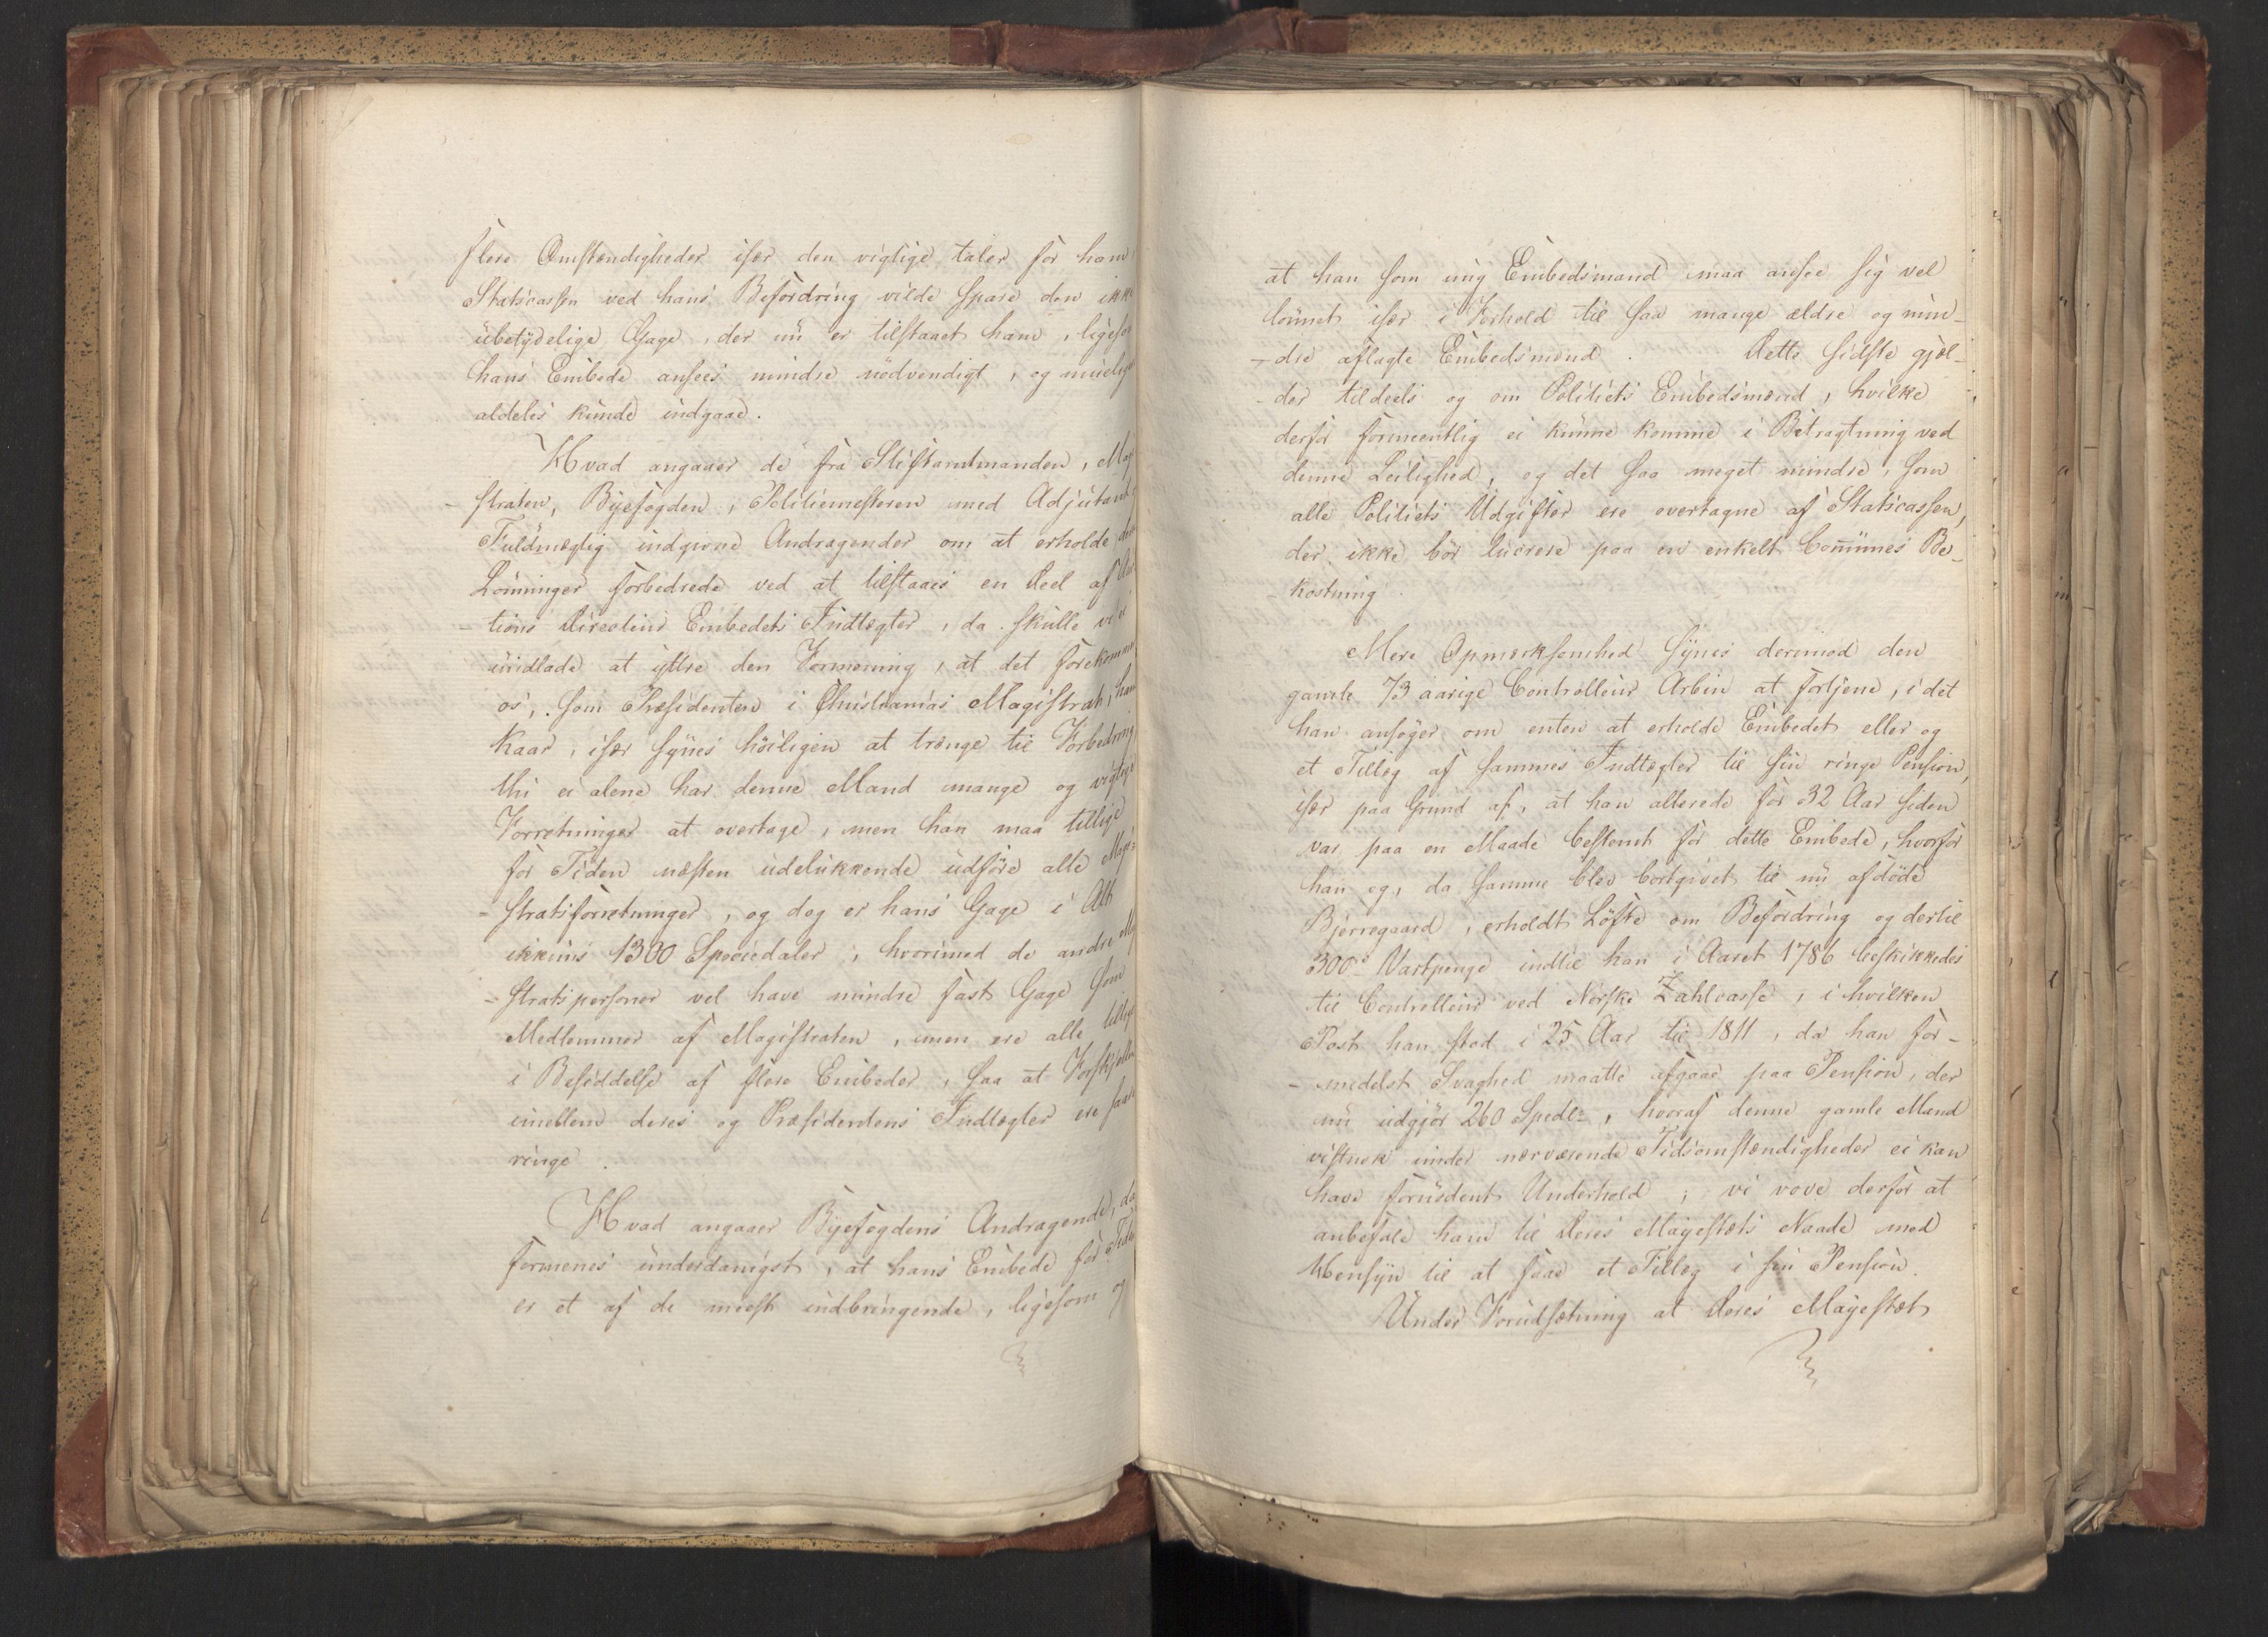 flere Omstændigheder især den vigtige taler for ham
Statscassen ved hans Befordring vilde spare den ikke
ubetydelige Gage, der nu er tilstaaet ham, ligesom
hans Embede ansees mindre nødvendigt, og muelig
aldeles kunde indgaae.
Hvad angaaer de fra Stiftamtmanden, Magi
-straten, Byefogden, Politiemesteren med Adjutant
Fuldmægtig indgivne Andragender om at erholde
Lønninger forbedrede ved at tilstaaes en Deel af
tions Directeur Embedets Indtægter, da skulle vi ei
undlade at yttre den Formening, at det forekommer
os, som Præsidenten i Christianias Magistrat, hans
Kaar, især synes høiligen at trænge til Forbedring
thi ei alene har denne Mand mange og vigtige
Forretninger at overtage, men han maa tillige
for Tiden næsten udelukkende udføre alle Magi
-stratsforretninger, og dog er hans Gage i Alt
ikkuns 1300 Speciedaler, hvorimod de andre Mag
-stratspersoner vel have mindre fast Gage som
Medlemmer af Magistraten, men ere alle tillige
i Besiddelse af flere Embeder, saa at Forskjellen
imellem deres og Præsidentens Indtægter ere saare
ringe.
Hvad angaaer Byefogdens Andragende, da
formenes underdanigst, at hans Embede for Tiden
er et af de meest indbringende, ligesom og
at han som ung Embedsmand maa ansee sig vel
lønnet især i Forhold til saa mange ældre og min-
-dre aflagte Embedsmænd. Dette sidste gjæl-
-der tildeels og om Politiets Embedsmænd, hvilke
derfor formeentlig ei kunne komme i Betragtning ved
denne Leilighed, og det saa meget mindre, som
alle Politiets Udgifter ere overtagne af Statscassen,
der ikke bør lucrere paa en enkelt Com̄unes Be-
kostning.
Mere Opmærksomhed synes derimod den
gamle 73 aarige Controlleur Arbin at fortjene, i det
han ansøger om enten at erholde Embedet eller og
et Tillæg af sammes Indtægter til sin ringe Pension,
især paa Grund af, at han allerede for 32 Aar siden
var paa en Maade bestemt for dette Embede, hvorfor
han og, da samme blev bortgivet til nu afdøde
Bjerregaard, erholdt Løfte om Befordring og dertil
300 Vartpenge indtil han i Aaret 1786 beskikkedes
til Controlleur ved Norske Zahlcasse, i hvilken
Post han stod i 25 Aar til 1811, da han for-
-medelst Svaghed maatte afgaae paa Pension, der
nu udgjør 260 Spedlr, hvoraf denne gamle Mand
vistnok under nærværende Tidsomstændigheder ei kan
have fornødent Underhold; vi vove derfor at
anbefale ham til Deres Majestæts Naade med
Hensyn til at faae et Tillæg i sin Pension.
Under Forudsætning at Deres Majestæt